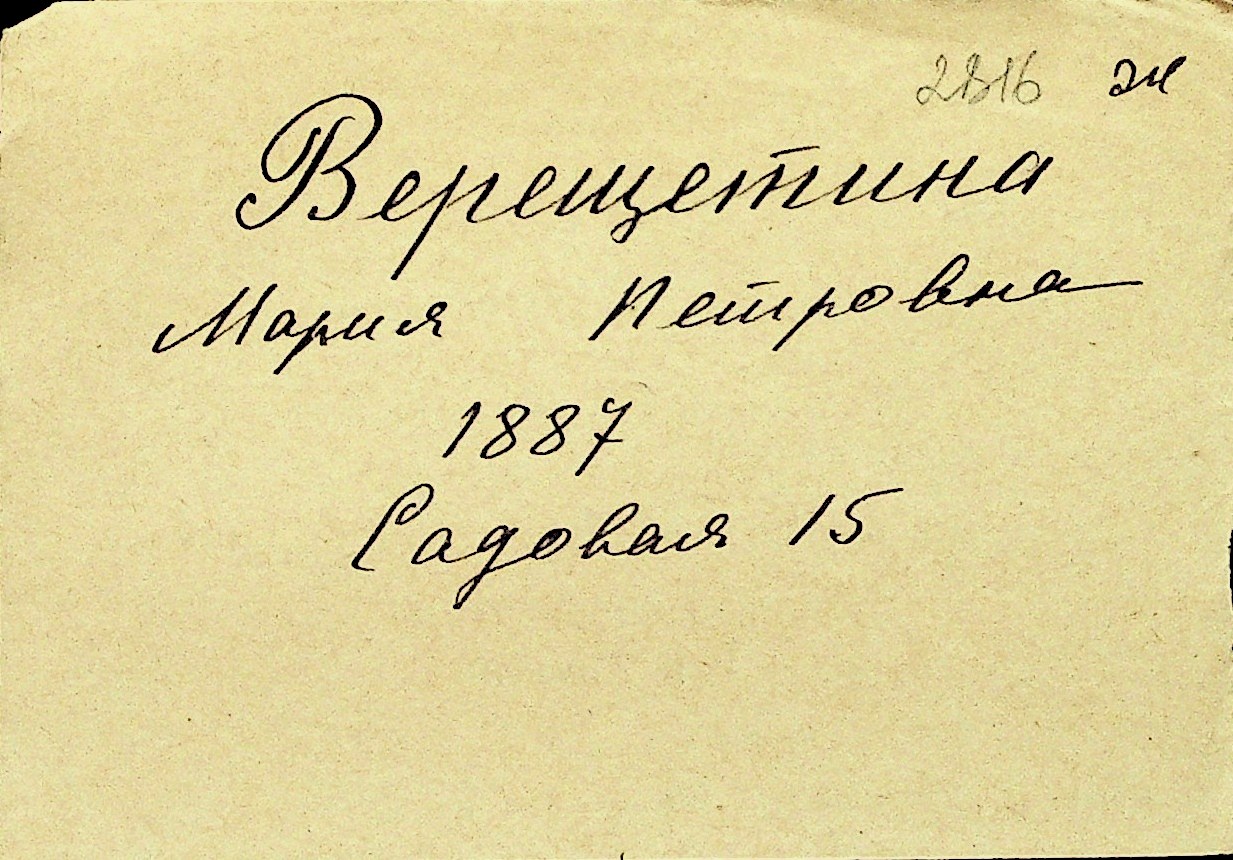 Верещетина
Мария Петровна
1887
Садовая 15